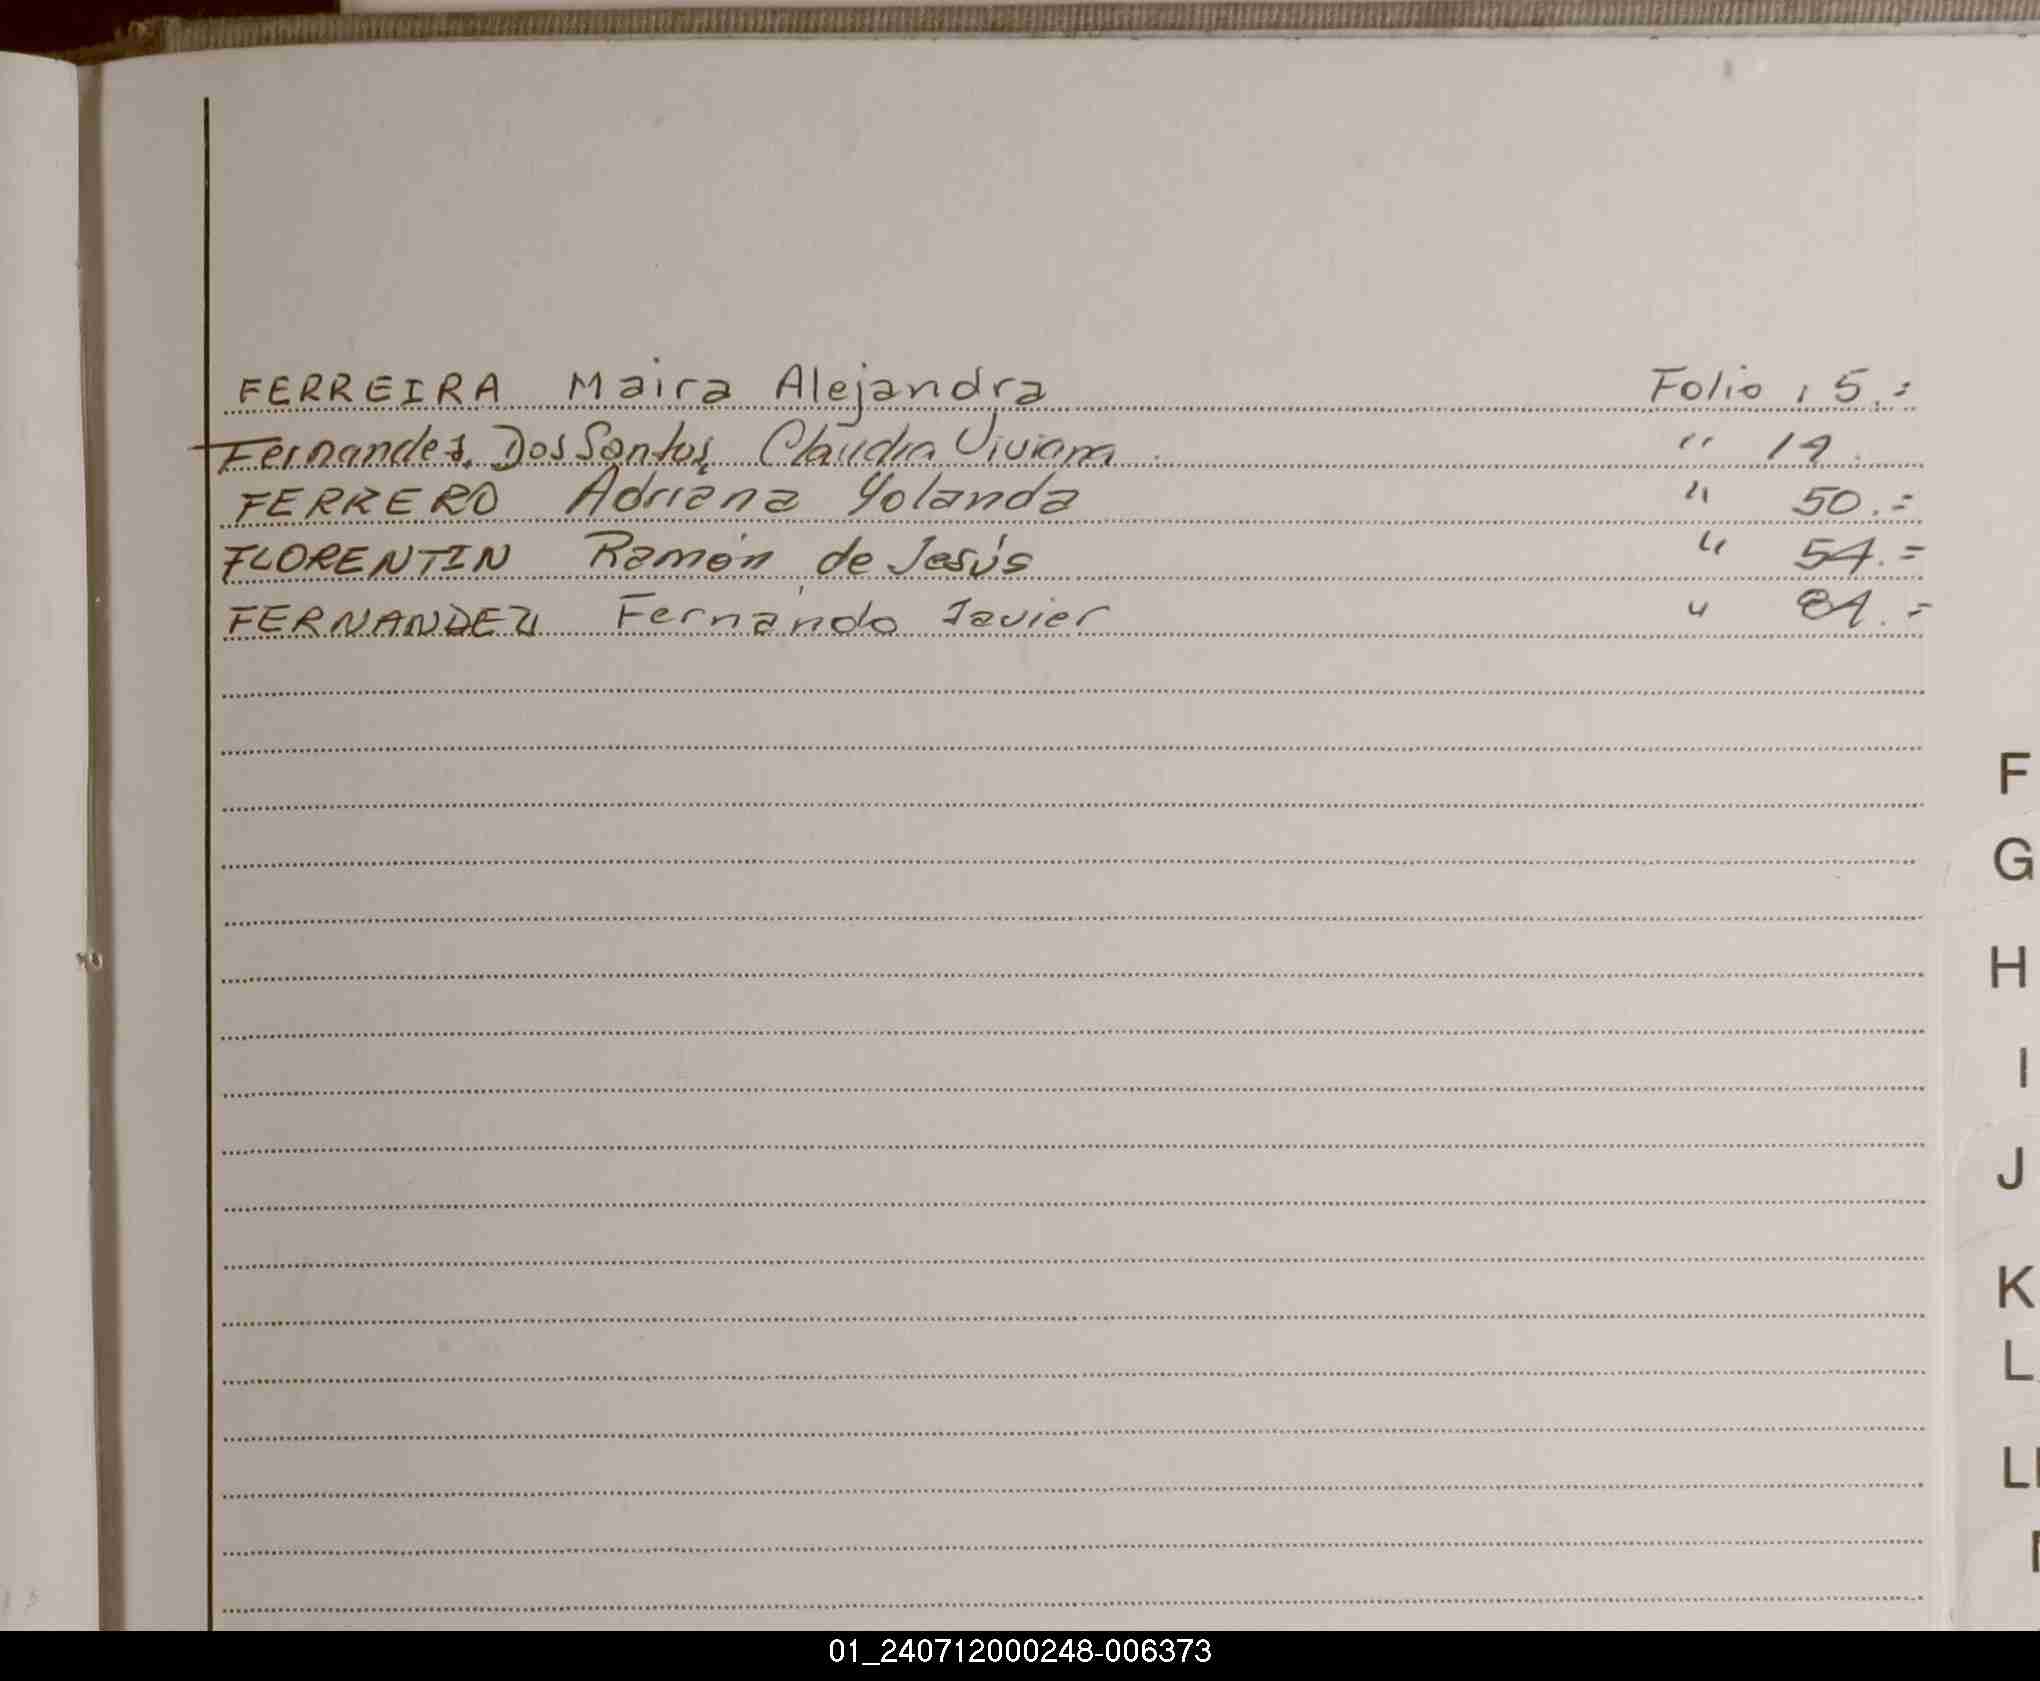 FERREIRA Maira Alejandra Folio , 5.=
Fernandes Dos Santos Claudia Viviana " 19.
FERRERO Adriana Yolanda " 50.=
FLORENTIN Ramón de Jesús " 54.=
FERNANDEZ Fernando Javier " 84.=
F
G
H
I
J
K
L
LL
01_240712000248-006373